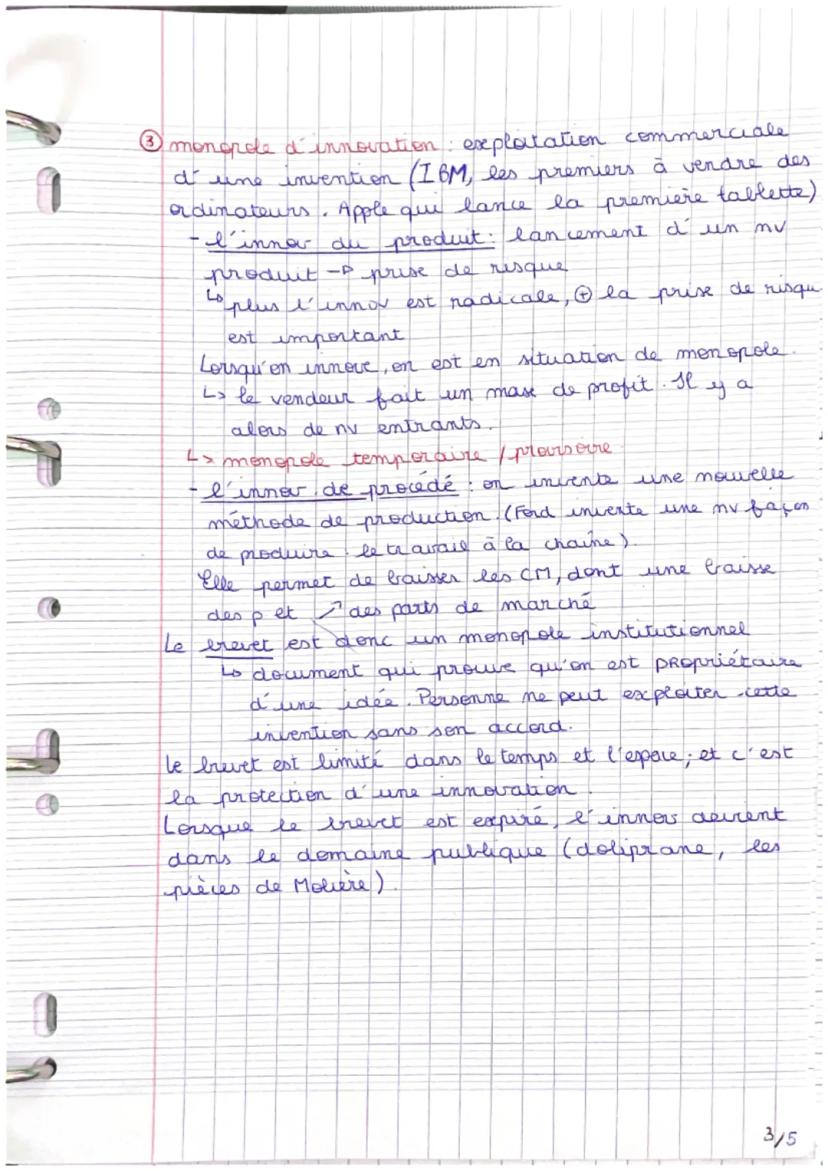 ③ monopole d'innovation : exploitation commerciale
d'une invention (IBM, les premiers à vendre des
ordinateurs. Apple qui lance la première tablette)
- l'innov du produit : lancement d'un nv
produit → prise de risque
↳ plus l'innov est radicale, ⊕ la prise de risqu
est important
Lorsqu'on innove, on est en situation de monopole.
↳ le vendeur fait un max de profit. Il y a
alors de nv entrants.
↳ monopole temporaire / provisoire
- l'innov. de procédé : on invente une nouvelle
méthode de production. (Ford invente une nv façon
de produire : le travail à la chaîne).
Elle permet de baisser les CM, dont une baisse
des p et ↗ des parts de marché
Le brevet est donc un monopole institutionnel
↳ document qui prouve qu'on est propriétaire
d'une idée. Personne ne peut exploiter cette
invention sans son accord.
Le brevet est limité dans le temps et l'espace ; et c'est
la protection d'une innovation.
Lorsque le brevet est expiré, l'innov devient
dans le domaine publique (doliprane, les
pièces de Molière).
3/5